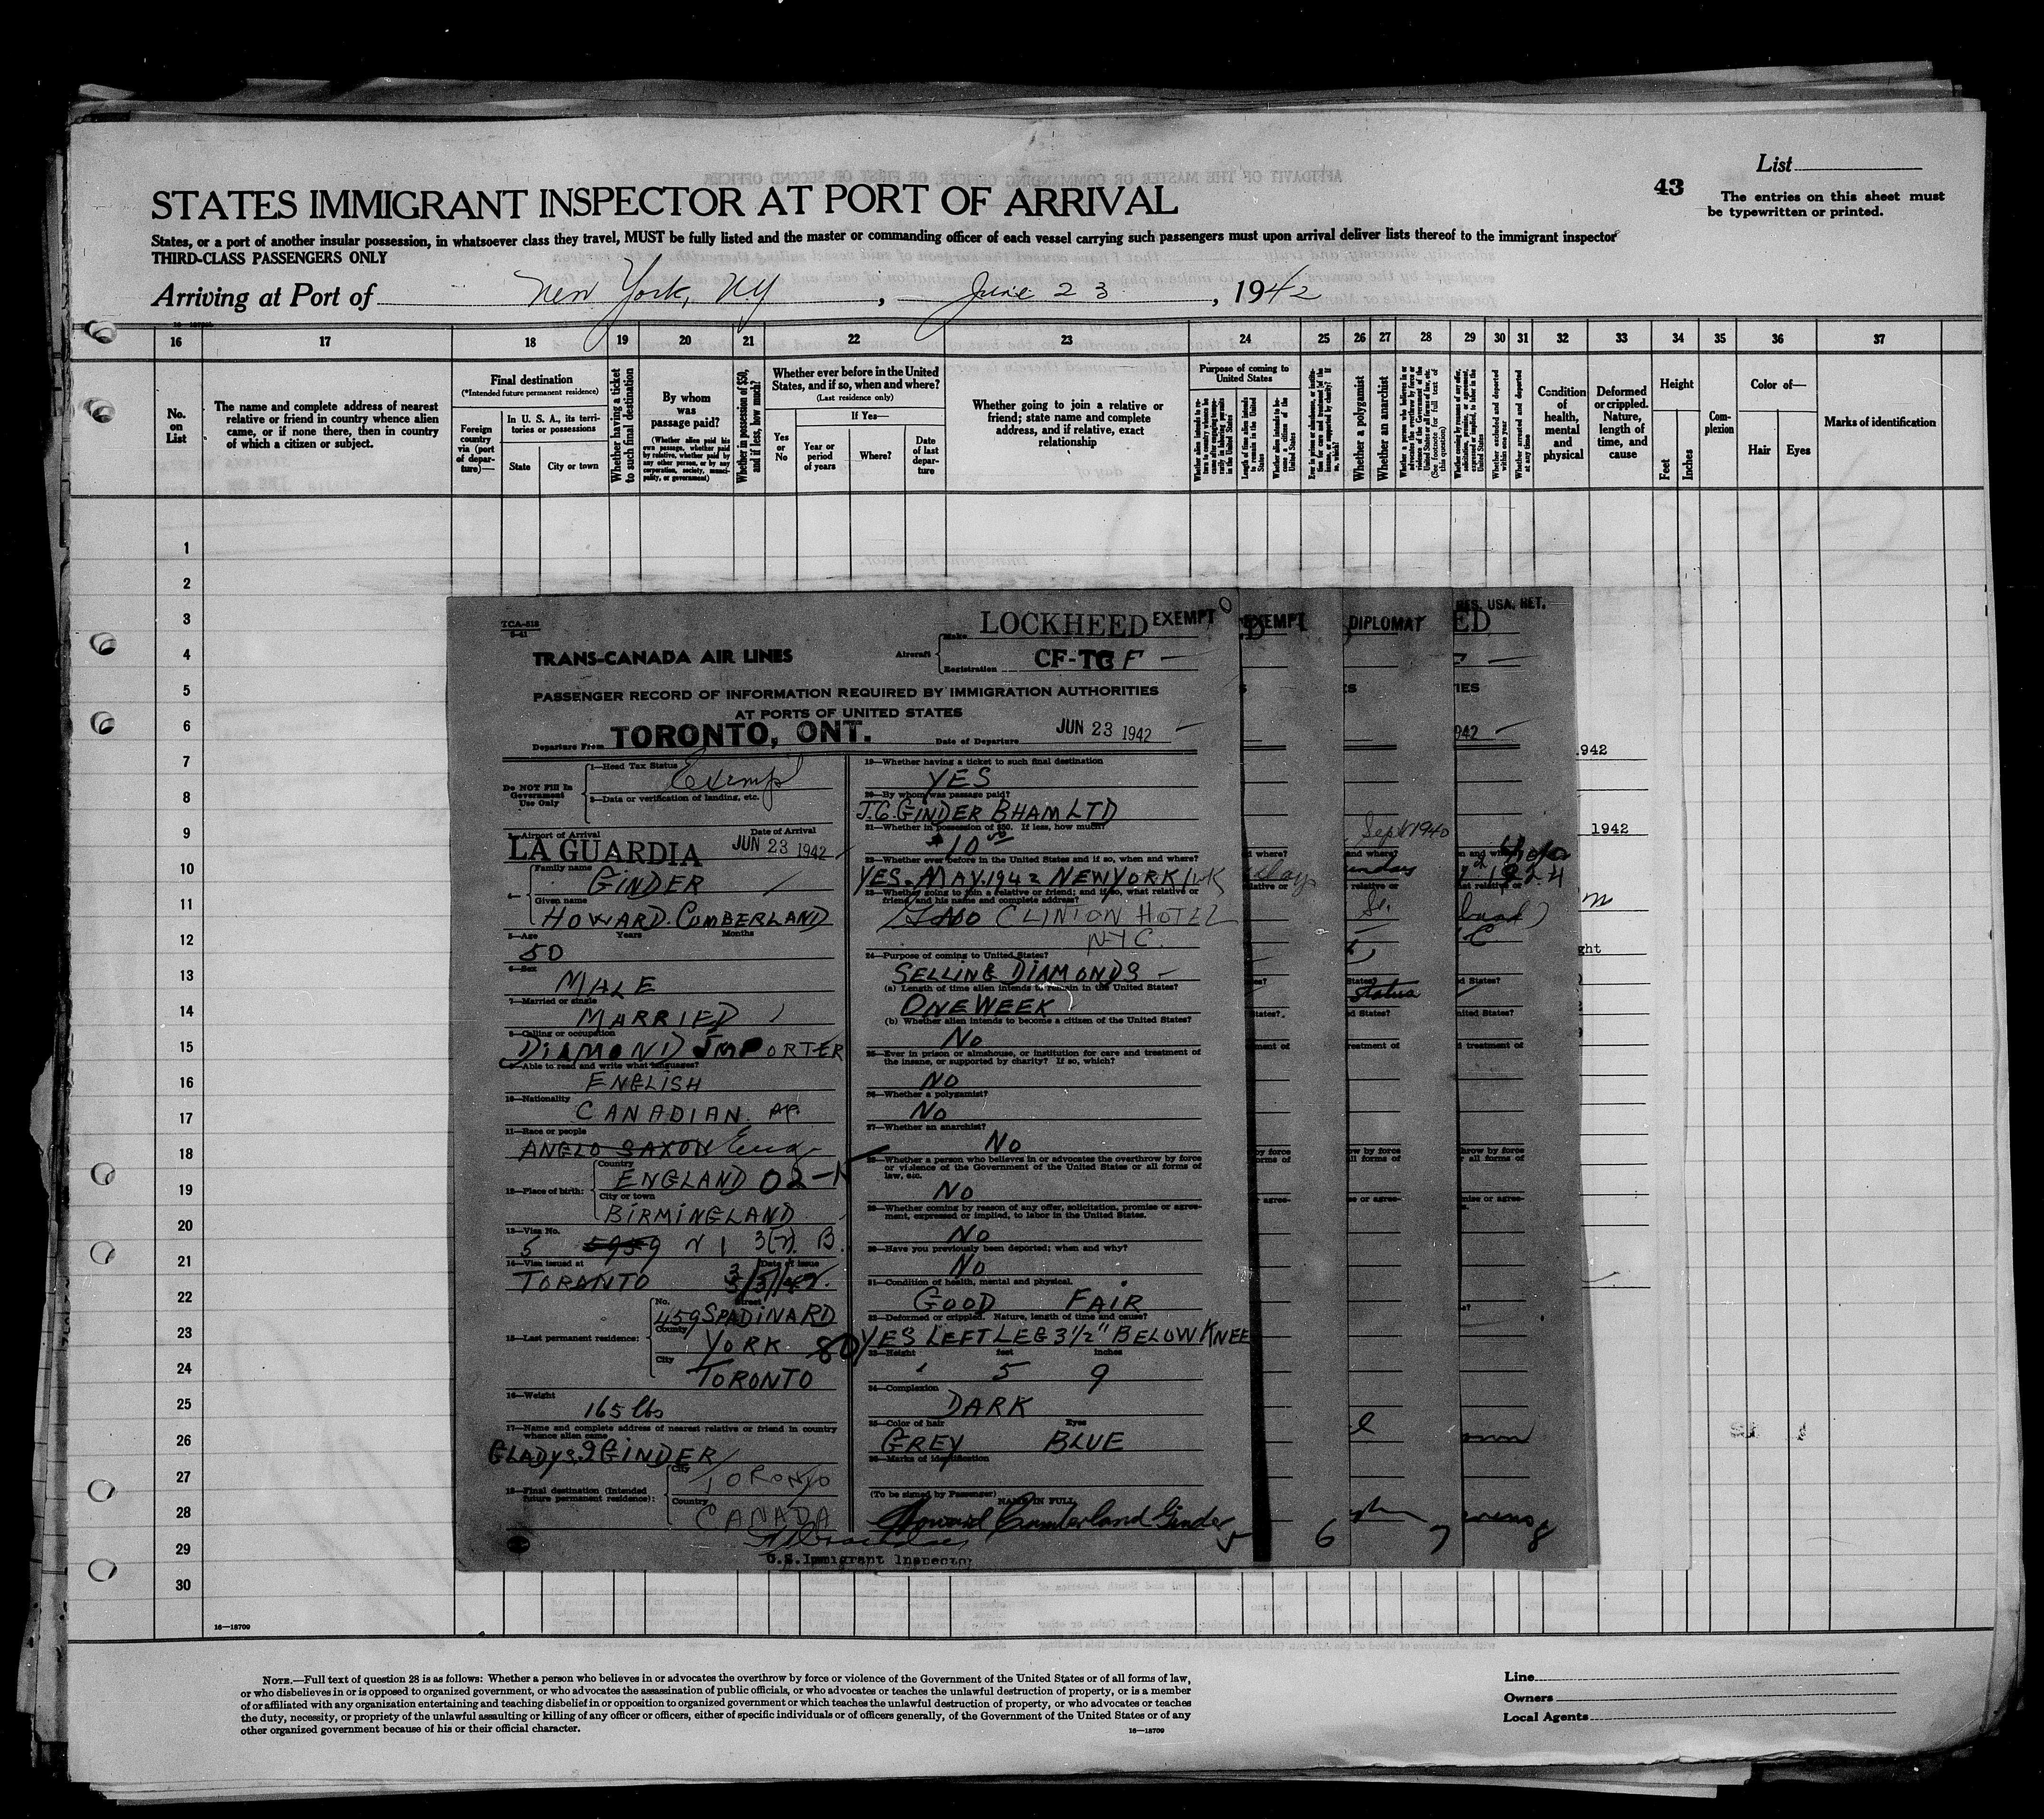 List
43
The entries on this sheet must
be typewritten or printed.
STATES IMMIGRANT INSPECTOR AT PORT OF ARRIVAL
States, or a port of another insular possession, in whatsoever class they travel, MUST be fully listed and the master or commanding officer of each vessel carrying such passengers must upon arrival deliver lists thereof to the immigrant inspector
THIRD-CLASS PASSENGERS ONLY
Arriving at Port of New York, NY, June 23, 1942
16 17 18 19 20 21 22 23 24 25 26 27 28 29 30 31 32 33 34 35 36 37
No. on List
The name and complete address of nearest
relative or friend in country whence alien
came, or if none there, then in country
of which a citizen or subject.
Final destination
(*Intended future permanent residence)
Foreign country via (port of departure)—
In U. S. A., its territories or possessions
State
City or town
Whether having a ticket to such final destination
By whom was passage paid?
(Whether alien paid his own passage, whether paid by relative, whether paid by any other person, or by any corporation, society, municipality, or government)
Whether in possession of $50, and if less, how much?
Whether ever before in the United
States, and if so, when and where?
(Last residence only)
Yes or No
If Yes—
Year or period of years
Where?
Date of last departure
Whether going to join a relative or
friend; state name and complete
address, and if relative, exact
relationship
Purpose of coming to
United States
Length of time alien intends to remain in the United States
Whether alien intends to become a citizen of the United States
Whether a polygamist
Whether an anarchist
(See footnote for full text of this question)
Whether excluded and deported within one year
Whether arrested and deported at any time
Condition of health, mental and physical
Deformed or crippled. Nature, length of time, and cause
Height
Feet
Inches
Complexion
Color of—
Hair
Eyes
Marks of identification
1
2
3
4
5
6
7
8
9
10
11
12
13
14
15
16
17
18
19
20
21
22
23
24
25
26
27
28
29
30
TCA-518
LOCKHEED EXEMPT
Make
TRANS-CANADA AIR LINES
Aircraft
Registration CF-TGF
PASSENGER RECORD OF INFORMATION REQUIRED BY IMMIGRATION AUTHORITIES
AT PORTS OF UNITED STATES
Departure From TORONTO, ONT.
Date of Departure JUN 23 1942
Do NOT Fill In
Government
Use Only
1—Head Tax Status Exempt
2—Data or verification of landing, etc.
3—Airport of Arrival LA GUARDIA
Date of Arrival JUN 23 1942
4— Family name GINDER
Given name HOWARD. CUMBERLAND
5—Age Years Months
50
6—Sex
MALE
7—Married or single
MARRIED
8—Calling or occupation
DIAMOND IMPORTER
9—Able to read and write what languages?
ENGLISH
10—Nationality
CANADIAN.
11—Race or people
ANGLO SAXON Eng
12—Place of birth: Country ENGLAND 02-
City or town
BIRMINGLAND
13—Visa No.
5 5959 3(2) B.
14—Visa issued at Date of issue
TORONTO
15—Last permanent residence:
No. Street
459 SPADINA RD
County
YORK 80
City
TORONTO
16—Weight
165 lbs
17—Name and complete address of nearest relative or friend in country
whence alien came
GLADYS. I GINDER
18—Final destination (Intended
future permanent residence):
City TORONTO
Country
CANADA
U.S. Immigrant Inspector
19—Whether having a ticket to such final destination
YES
20—By whom was passage paid?
J.G. GINDER BHAM LTD
21—Whether in possession of $50. If less, how much?
$10 00
22—Whether ever before in the United States and if so, when and where?
YES. MAY. 1942 NEW YORK 1 wk
23—Whether going to join a relative or friend; and if so, what relative or
friend, and his name and complete address?
CLINTON HOTEL
NYC.
24—Purpose of coming to United States?
SELLING DIAMONDS
(a) Length of time alien intends to remain in the United States?
ONE WEEK
(b) Whether alien intends to become a citizen of the United States?
NO
25—Ever in prison or almshouse, or institution for care and treatment of
the insane, or supported by charity? If so, which?
NO
26—Whether a polygamist?
NO
27—Whether an anarchist?
NO
28—Whether a person who believes in or advocates the overthrow by force
or violence of the Government of the United States or all forms of
law, etc.
NO
29—Whether coming by reason of any offer, solicitation, promise or agree-
ment, expressed or implied, to labor in the United States.
NO
30—Have you previously been deported; when and why?
NO
31—Condition of health, mental and physical.
GOOD FAIR
32—Deformed or crippled. Nature, length of time and cause?
YES LEFT LEG 3½" BELOW KNEE
33—Height feet inches
5 9
34—Complexion
DARK
35—Color of hair Eyes
GREY BLUE
36—Marks of identification
(To be signed by Passenger) NAME IN FULL
Howard Cumberland Ginder
5
EXEMPT
6
DIPLOMAT
Sept 1940
status
7
RES. USA. RET.
ED
1942
1924
8
1942
1942
16—18709
NOTE.—Full text of question 28 is as follows: Whether a person who believes in or advocates the overthrow by force or violence of the Government of the United States or of all forms of law,
or who disbelieves in or is opposed to organized government, or who advocates the assassination of public officials, or who advocates or teaches the unlawful destruction of property, or is a member
of or affiliated with any organization entertaining and teaching disbelief in or opposition to organized government or which teaches the unlawful destruction of property, or who advocates or teaches
the duty, necessity, or propriety of the unlawful assaulting or killing of any officer or officers, either of specific individuals or of officers generally, of the Government of the United States or of any
other organized government because of his or their official character.
16—18709
Line
Owners
Local Agents